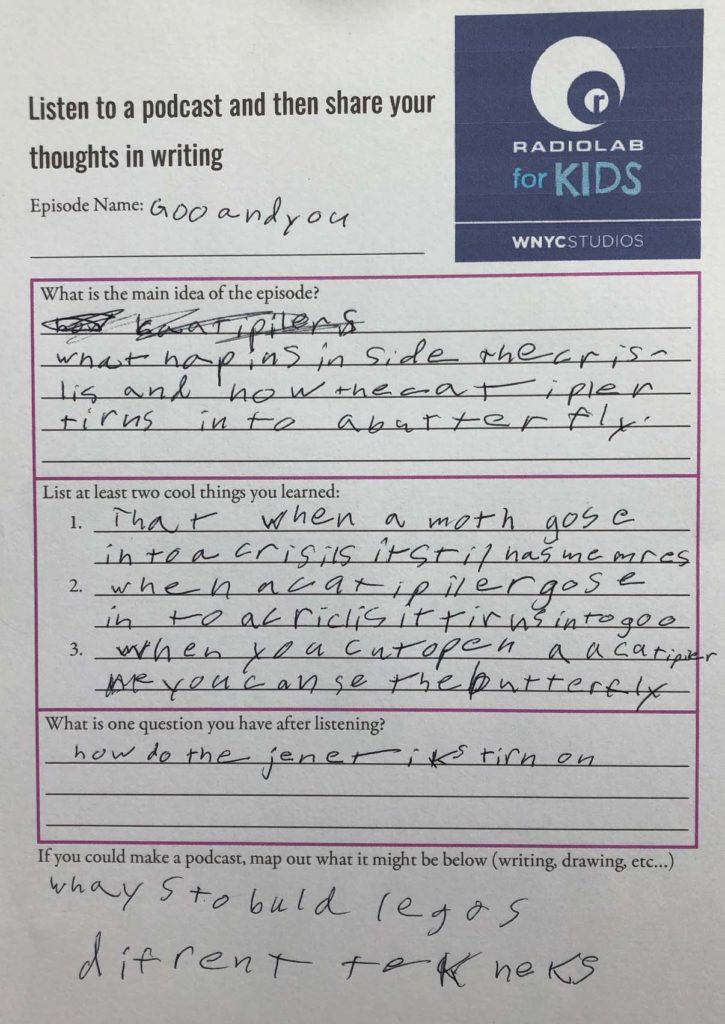 Listen to a podcast and then share your
thoughts in writing
RADIOLAB
for KIDS
WNYCSTUDIOS
Episode Name: Goo and you
What is the main idea of the episode?
what hapins in side the cris-
lis and how the catipler
tirns in to a butterfly.
List at least two cool things you learned:
1. That when a moth gose
in to a crisils it stil has memres
2. when a catipiler gose
in to a criclis it tirns into goo
3. when you cut open a a catipiler
you can se the butterfly
What is one question you have after listening?
how do the jenetiks tirn on
If you could make a podcast, map out what it might be below (writing, drawing, etc...)
whays to buld legos
difrent tekneks